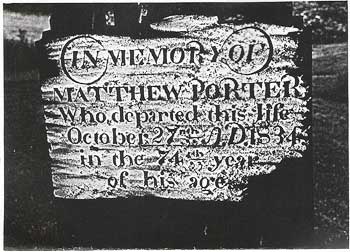 IN MEMORY OF
MATTHEW PORTER
Who, departed this life
October, 27th A.D. 1834
in the 74th year
of his age